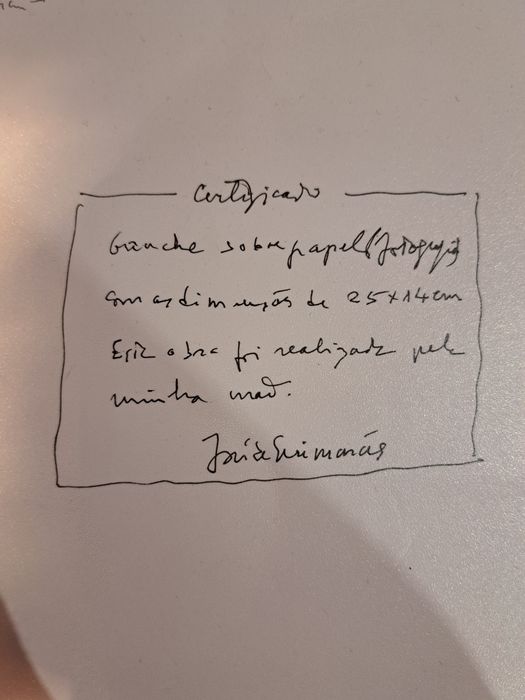 Certificado
Guache sobre papel/fotografia
com as dimensões de 25x14cm
Esta obra foi realizada pela
minha mão.
José de Guimarães